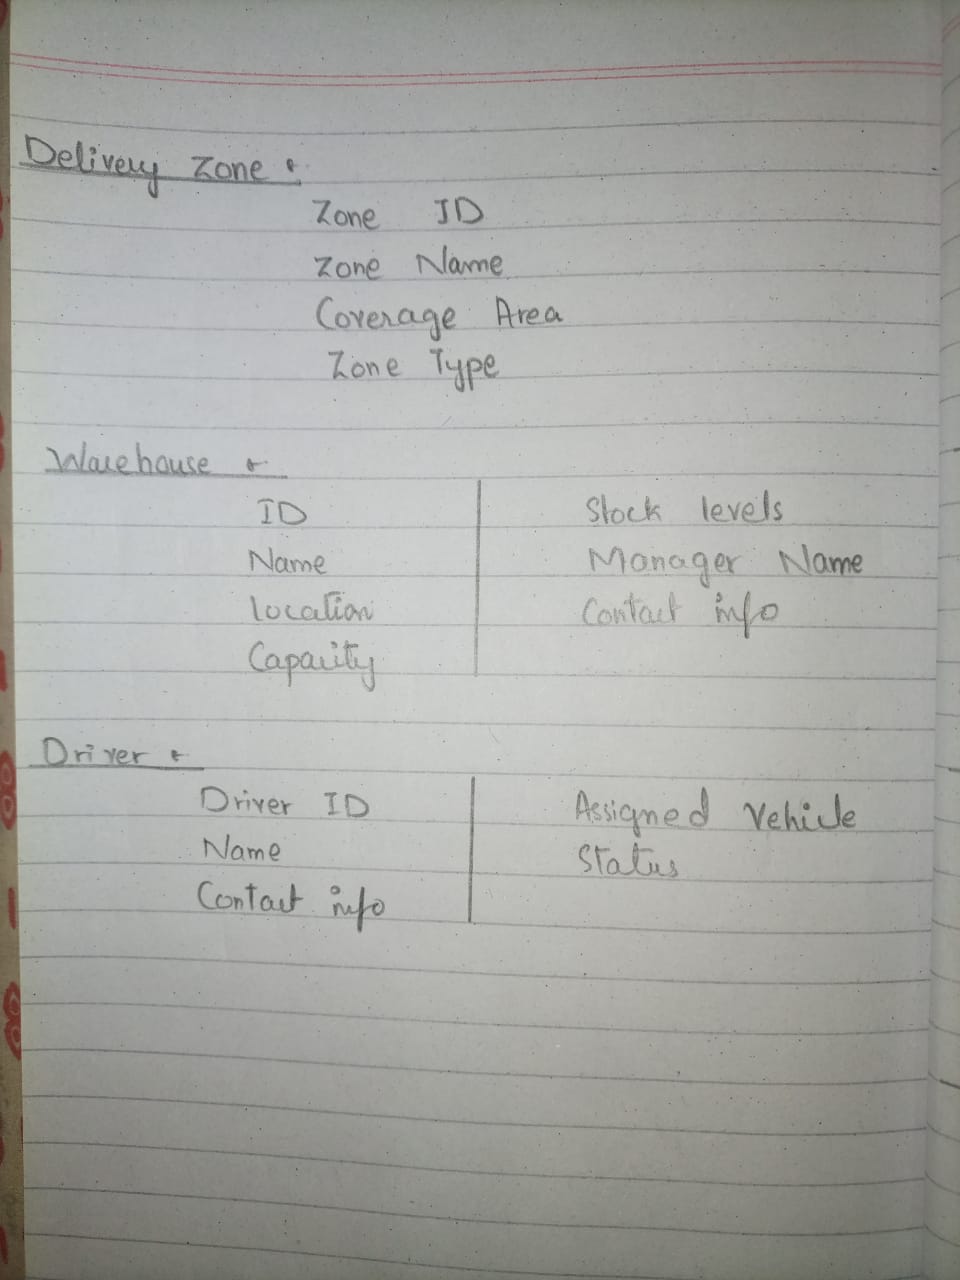 Delivery Zone :
Zone ID
Zone Name
Coverage Area
Zone Type
Warehouse :
ID
Name
Location
Capacity
Stock levels
Manager Name
Contact info
Driver :
Driver ID
Name
Contact info
Assigned Vehicle
Status